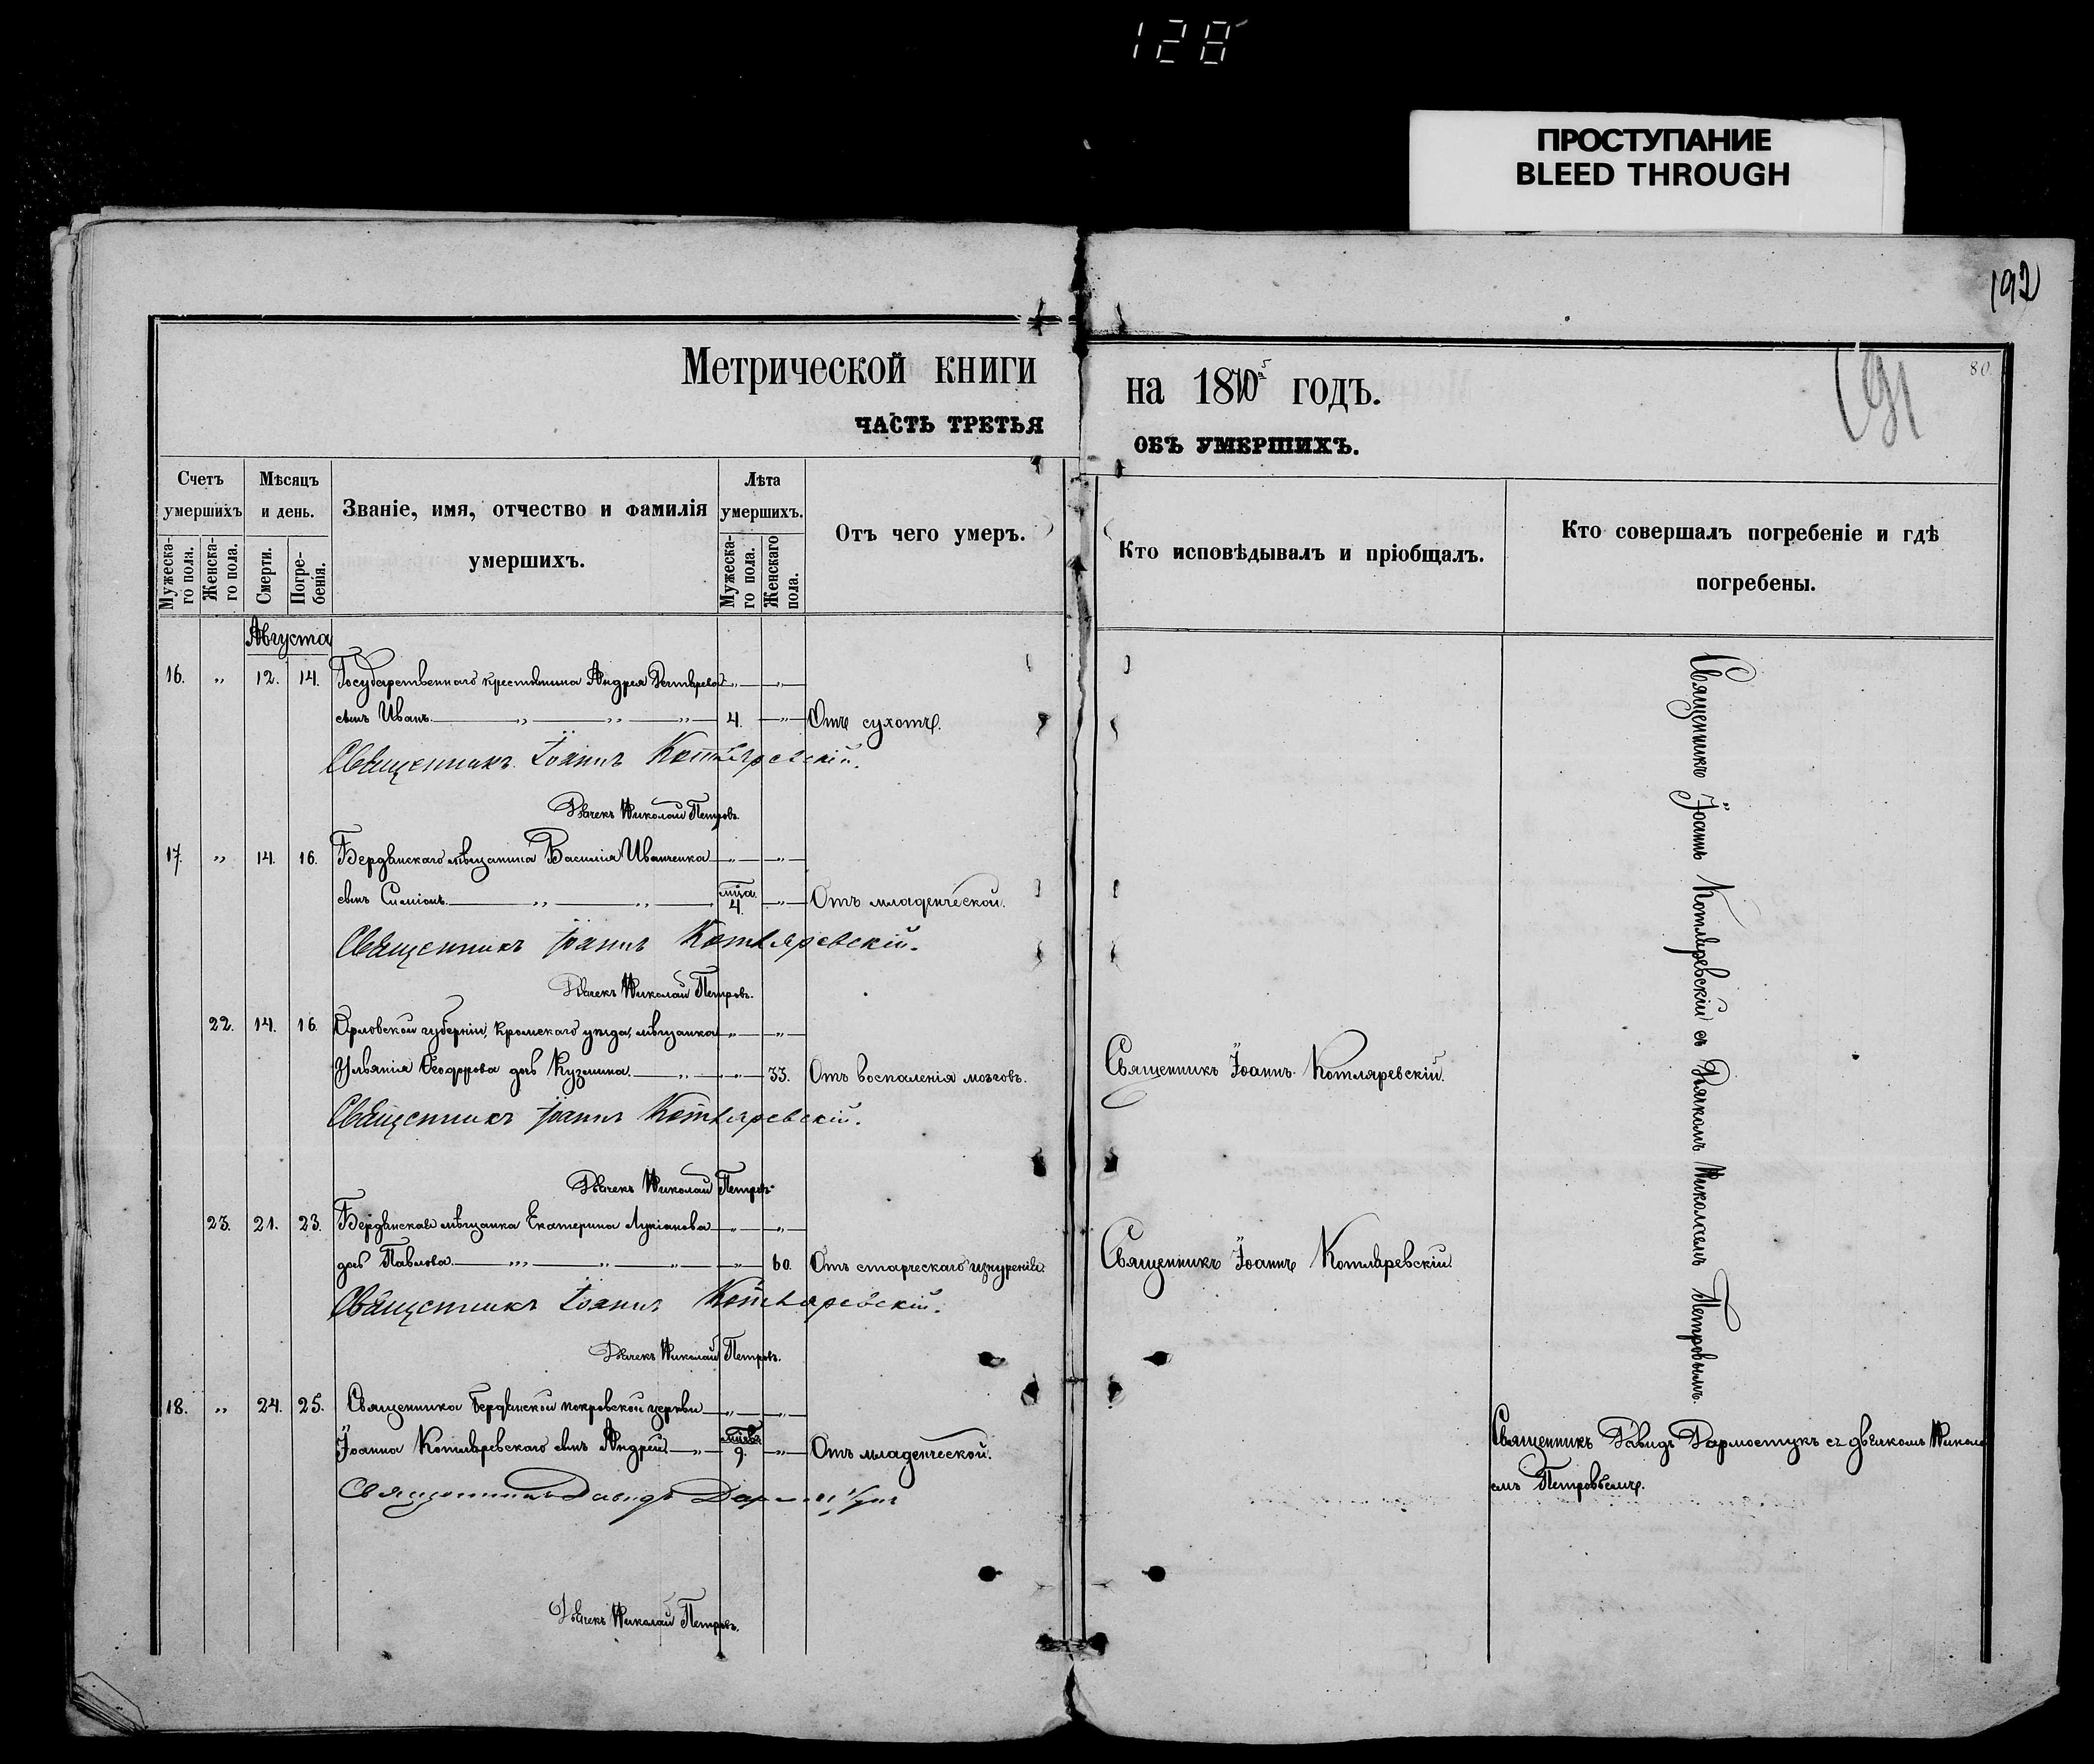 128
ПРОСТУПАНИЕ
BLEED THROUGH
192
191
80.
Метрической книги на 1870 5 годъ.
ЧАСТЬ ТРЕТЬЯ ОБЪ УМЕРШИХЪ.
Счетъ умершихъ
Мужеска-го пола.
Женска-го пола.
Мѣсяцъ и день.
Смерти.
Погре-бенія.
Званіе, имя, отчество и фамилія умершихъ.
Лѣта умершихъ.
Мужеска-го пола.
Женскаго пола.
Отъ чего умеръ.
Кто исповѣдывалъ и пріобщалъ.
Кто совершалъ погребеніе и гдѣ погребены.
Августа
16. „ 12. 14. Государственнаго крестьянина Андрея
сынъ Иванъ. 4. Отъ сухотъ.
Священникъ Іоаннъ Котляревскій.
Дьячекъ Николай Петровъ.
17. „ 14. 16. Бердянскаго мѣщанина Василія Иванченка
сынъ Симіонъ. мца. 4. Отъ младенческой.
Священникъ Іоаннъ Котляревскій.
Дьячекъ Николай Петровъ.
22. 14. 16. Орловской губерніи, Кромскаго уѣзда, мѣщанка
Ульянія Ѳеодорова дочь Кузмина. 33. Отъ воспаленія мозговъ. Священникъ Іоаннъ Котляревскій.
Священникъ Іоаннъ Котляревскій.
Дьячекъ Николай Петровъ
23. 21. 23. Бердянская мѣщанка Екатерина Лукіанова
дочь Павлова. 60. Отъ старческаго изнуренія. Священникъ Іоаннъ Котляревскій.
Священникъ Іоаннъ Котляревскій.
Дьячекъ Николай Петровъ.
Священникъ Іоаннъ Котляревскій съ Дьячкомъ Николаемъ Петровымъ.
18. „ 24. 25. Священника Бердянской покровской церкви
Іоанна Котляревскаго сынъ Андрей. 9. Отъ младенческой. Священникъ Давидъ Дармостукъ съ дьячкомъ Никола
емъ Петровымъ.
Священникъ Давидъ
Дьячекъ Николай Петровъ.